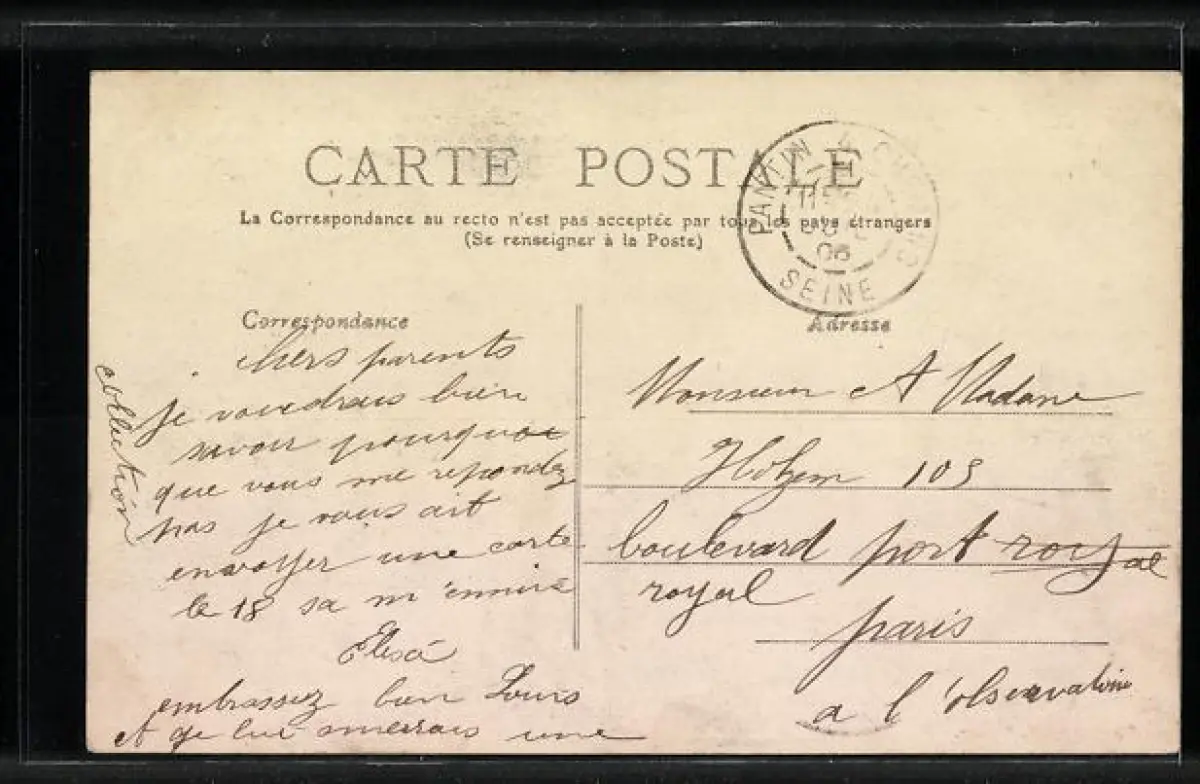 CARTE POSTALE
La Correspondance au recto n'est pas acceptée par tous les pays étrangers
(Se renseigner à la Poste)
PANTIN
SEINE
06
Correspondance
chers parents
je voudrais bien
savoir pourquoi
que vous me repondez
pas je vous ait
envoyer une carte
le 18 sa m'ennuie
Elisa
embrassez bien Louis
et je lui une
collection
Adresse
Monsieur et Madame
105
boulevard port royal
royal
paris
a l'observatoire